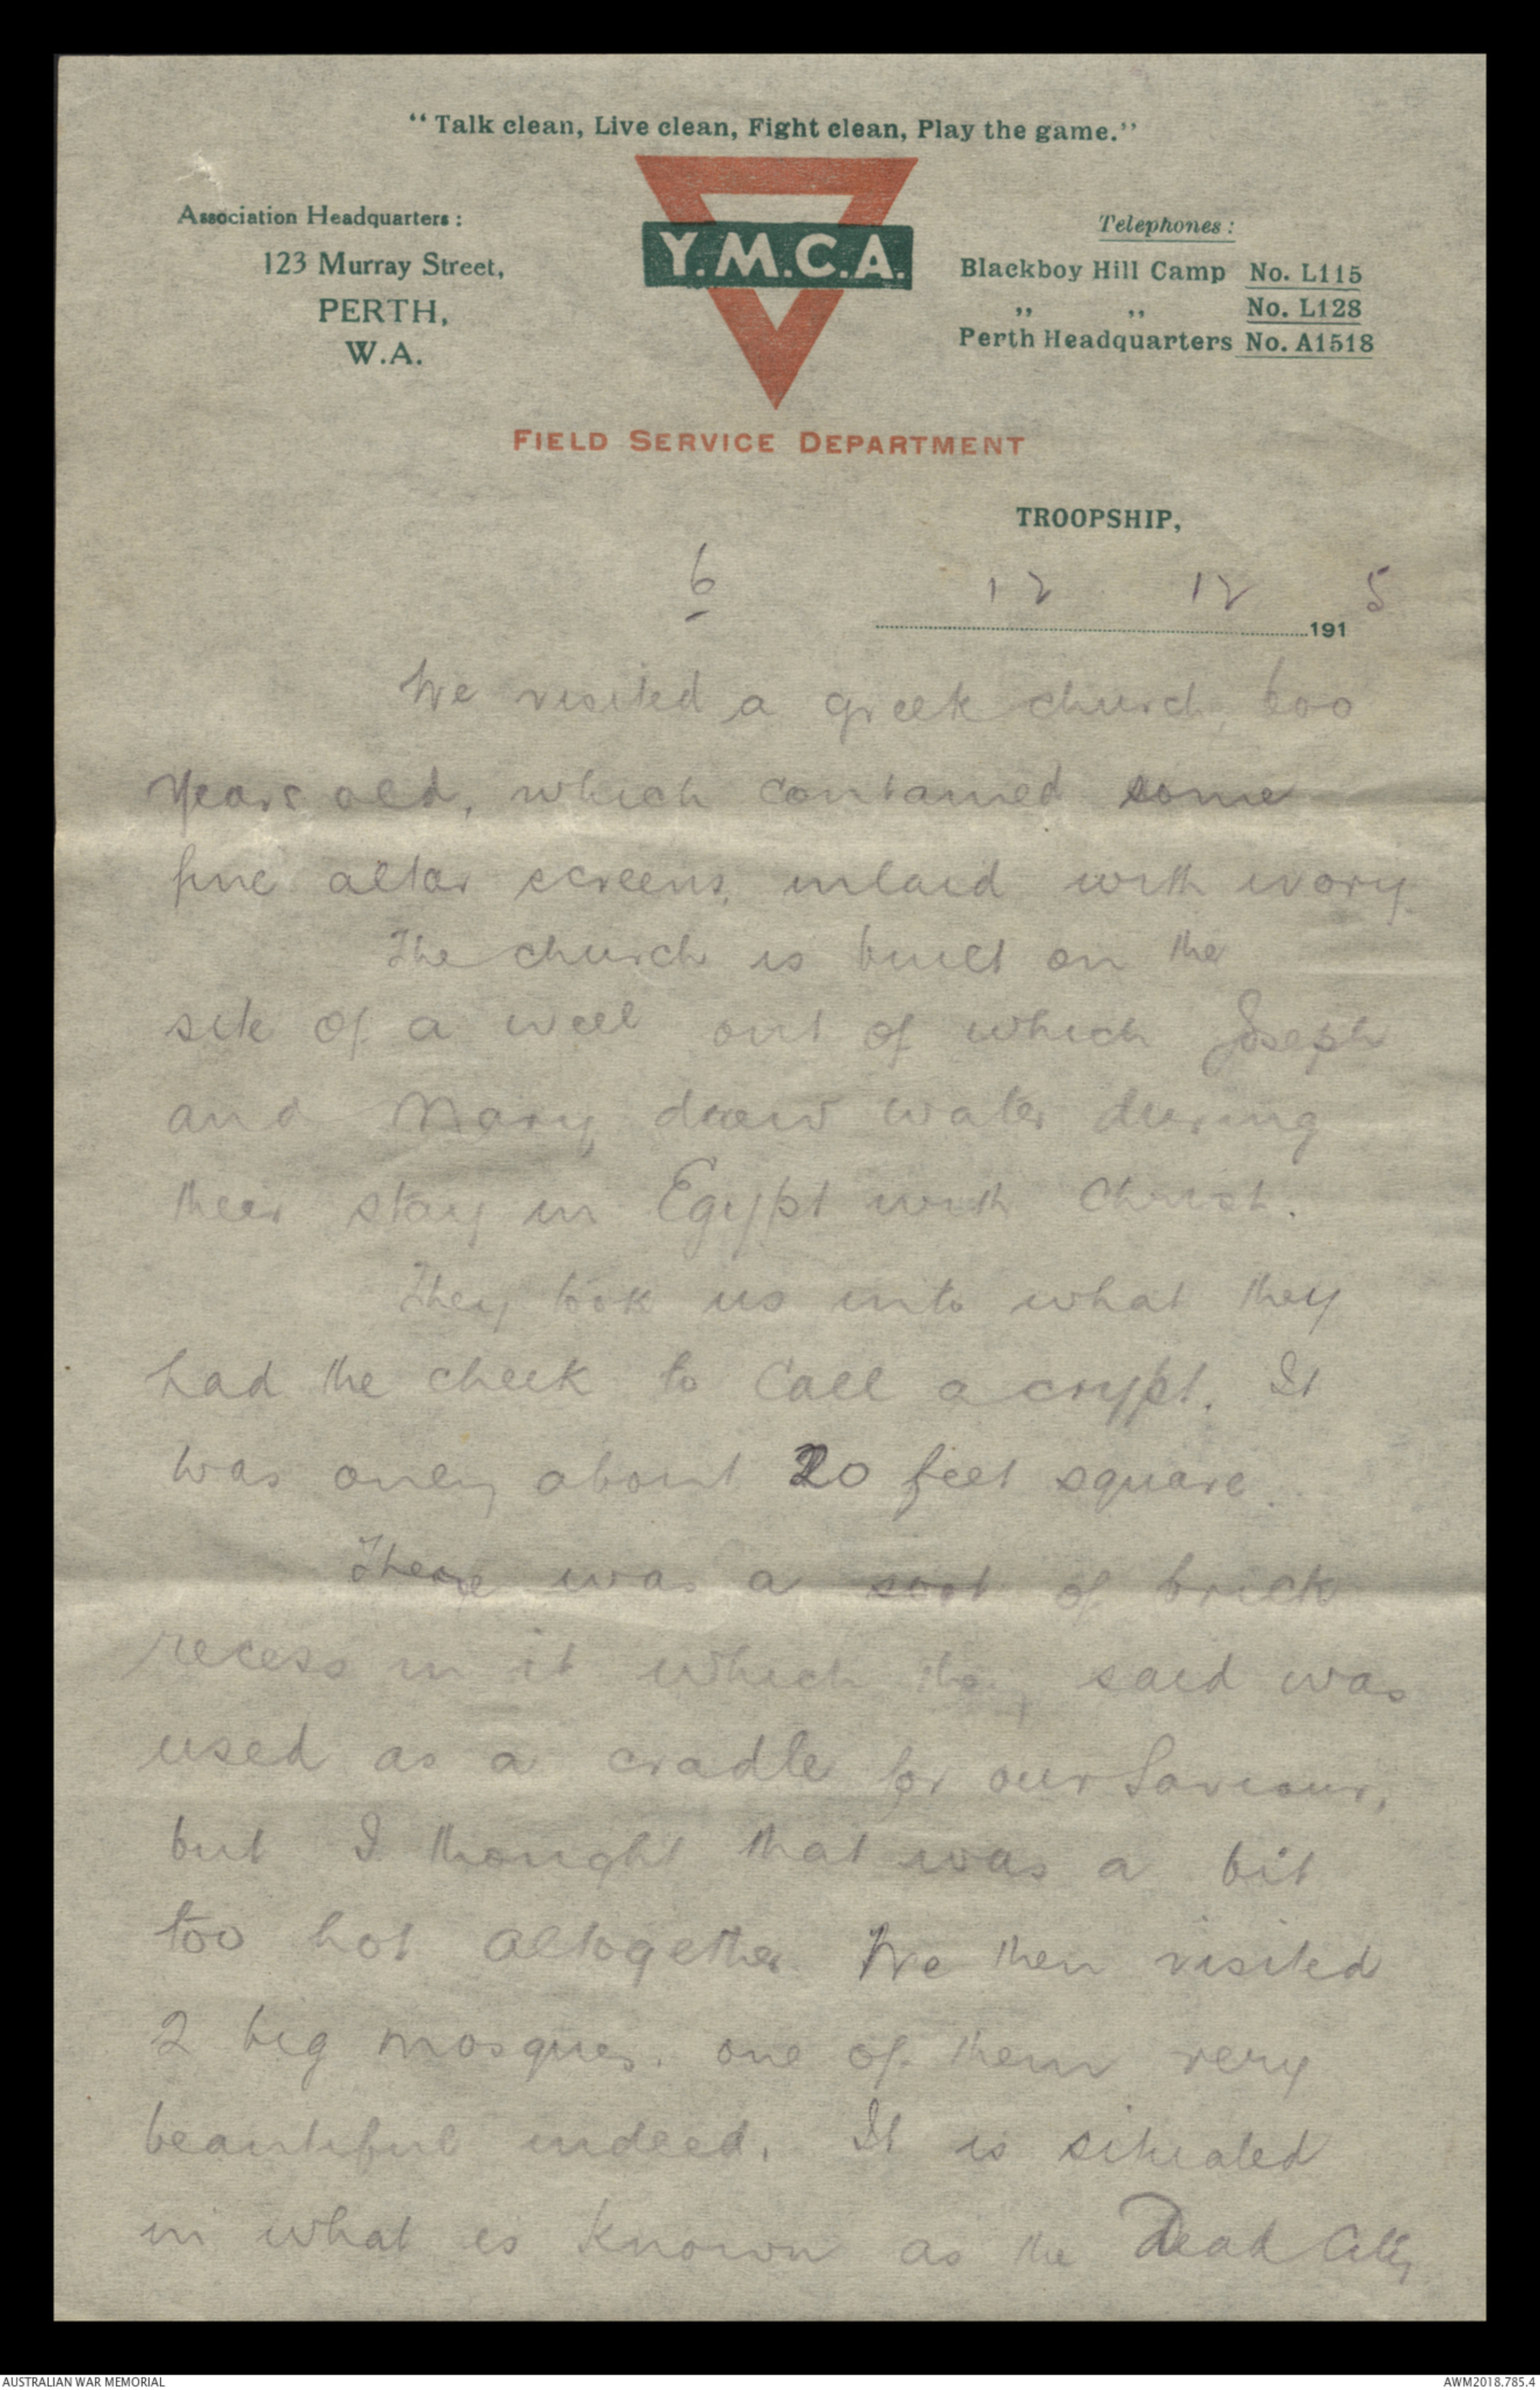 "Talk clean, Live clean, Fight clean, Play the game."
Association Headquarters:
123 Murray Street,
PERTH,
W.A.
Y.M.C.A.
Telephones:
Blackboy Hill Camp No. L115
" " No. L128
Perth Headquarters No. A1518
FIELD SERVICE DEPARTMENT
TROOPSHIP,
6
12 12 1915
We visited a greek church, 600
years old, which contained some
fine altar screens, inlaid with ivory.
The church is built on the
site of a well out of which Joseph
and Mary drew water during
their stay in Egypt with Christ.
They took us into what they
had the cheek to call a crypt. It
was only about 20 feet square.
There was a sort of brick
recess in it which they said was
used as a cradle for our Saviour,
but I thought that was a bit
too hot altogether. We then visited
2 big mosques, one of them very
beautiful indeed. It is situated
in what is known as the Dead City
AUSTRALIAN WAR MEMORIAL
AWM2018.785.4